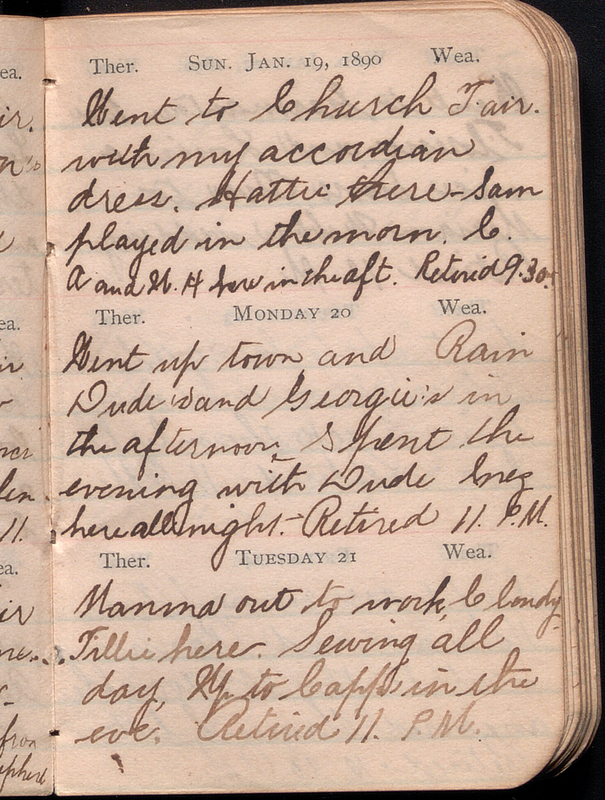 ea.
Ther. SUN. JAN. 19, 1890 Wea.
Went to Church Fair.
with my accordian
dress. Hattie there - Sam
played in the morn. C.
A and W. H here in the aft. Retired 9.30.
ea.
Ther. MONDAY 20 Wea.
Went up town and Rain
Dude's and Georgie's in
the afternoon, Spent the
evening with Dude Inez
here all night. - Retired 11. P.M.
11.
ea.
Ther. TUESDAY 21 Wea.
Mamma out to work, Cloudy
Tillie here. Sewing all
day, Up to Capps in the
eve. Retired 11. P.M.